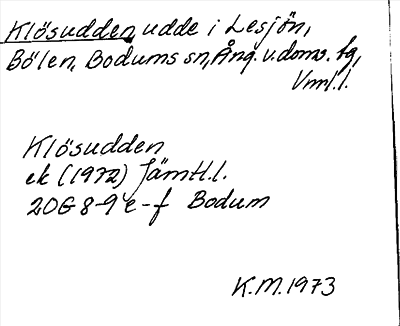 Klösudden, udde i Lesjön,
Bölen, Bodums sn, Ång. v. doms. tg,
Vnnl.l.
Klösudden
ek (1972) Jämtl.l.
20G 8-9 e-f Bodum
K.M. 1973